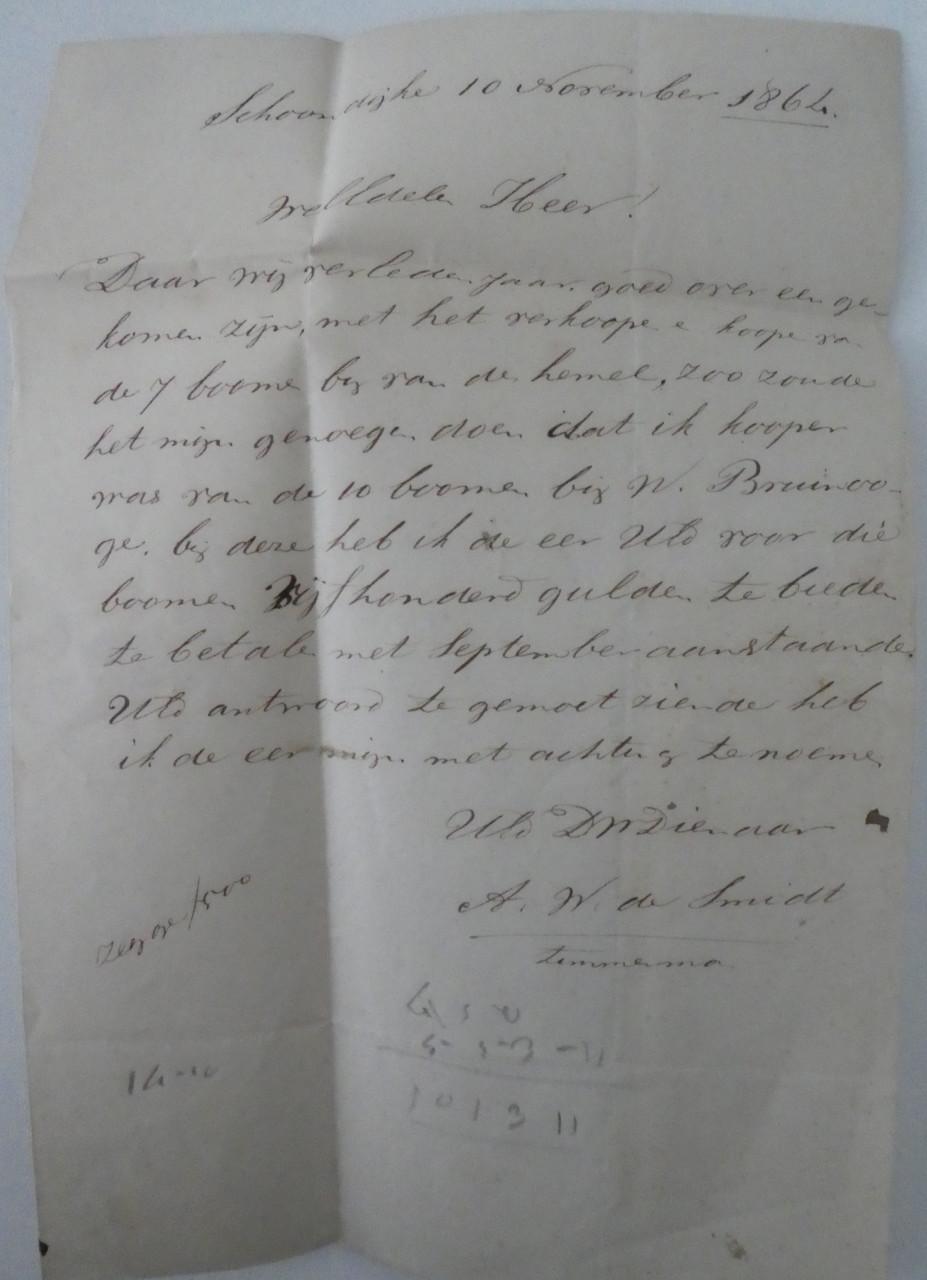 Schoondijke 10 November 1864.
WelEdele Heer!
Daar wij verleden jaar goed over een ge-
komen zijn, met het verkoope e koope van
de 7 boome bij van de hemel, zoo zoude
het mijn genoegen doen dat ik kooper
was van de 10 boomen bij W. Bruinoo-
ge. bij deze heb ik de eer UEd voor die
boomen Vijfhonderd gulden te bieden
te betalen met September aanstaande.
UEd antwoord te gemoet ziende heb
ik de eer mijn met achting te noemen
UEd DWDienaar
A. W. de Smidt
timmerman
14-10
4 5 0
5 5 3 - 11
10 1 3 11